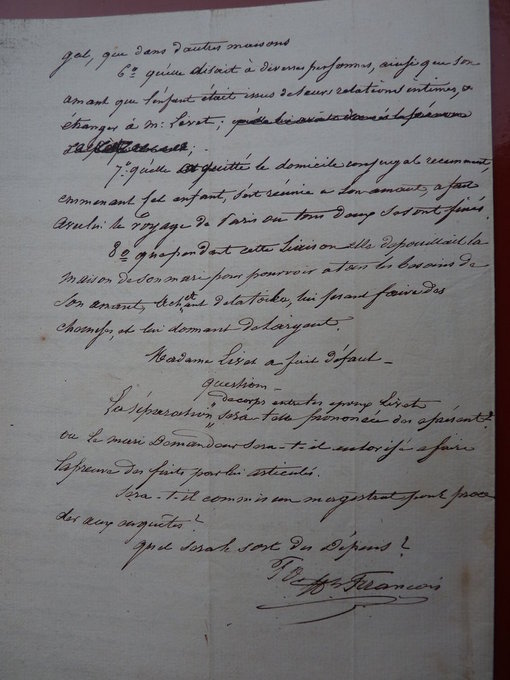 gal, que dans d'autres maisons
6º quelle disait à diverses personnes, ainsi que son
amant que l'enfant était issus de leurs relations intimes, &
étranger à Mr Livet;
7º quelle a quitté le domicile conjugal recemment,
emmenant cet enfant, s'est réunie a son amant, a fait
avec lui le voyage de Paris ou tous deux se sont fixés.
8º que pendant cette liaison elle depouillait la
maison de son mari pour pourvoir a tous les besoins de
son amant, achetant de la toile, lui fesant faire des
chemises, et lui donnant de l'argent.
Madame Livet a fait défaut —
question —
La séparation de corps entre les epoux Livet sera-t-elle prononcée des apésent?
ou le mari Demandeur sera-t-il autorisé a faire
la preuve des faits par lui articulés.
Sera-t-il commis un magistrat pour proce
der aux enquêtes?
quel sera le sort des Dépens?
François